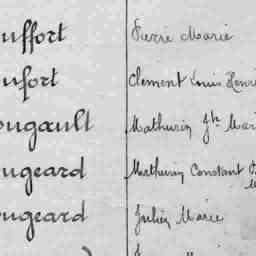 uffort Pierre Marie
ufort Clement Louis Henri
ougault Mathurin Jh Mari
ugeard Mathurin Constant
ougeard Julien Marie